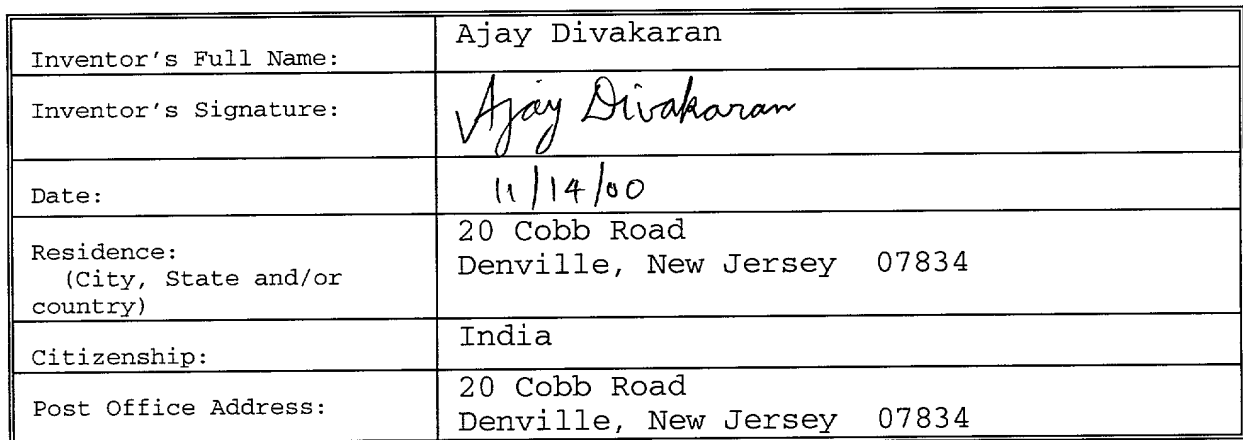 Inventor's Full Name: Ajay Divakaran
Inventor's Signature: Ajay Divakaran
Date: 11/14/00
Residence:
(City, State and/or
country)
20 Cobb Road
Denville, New Jersey 07834
Citizenship: India
Post Office Address:
20 Cobb Road
Denville, New Jersey 07834